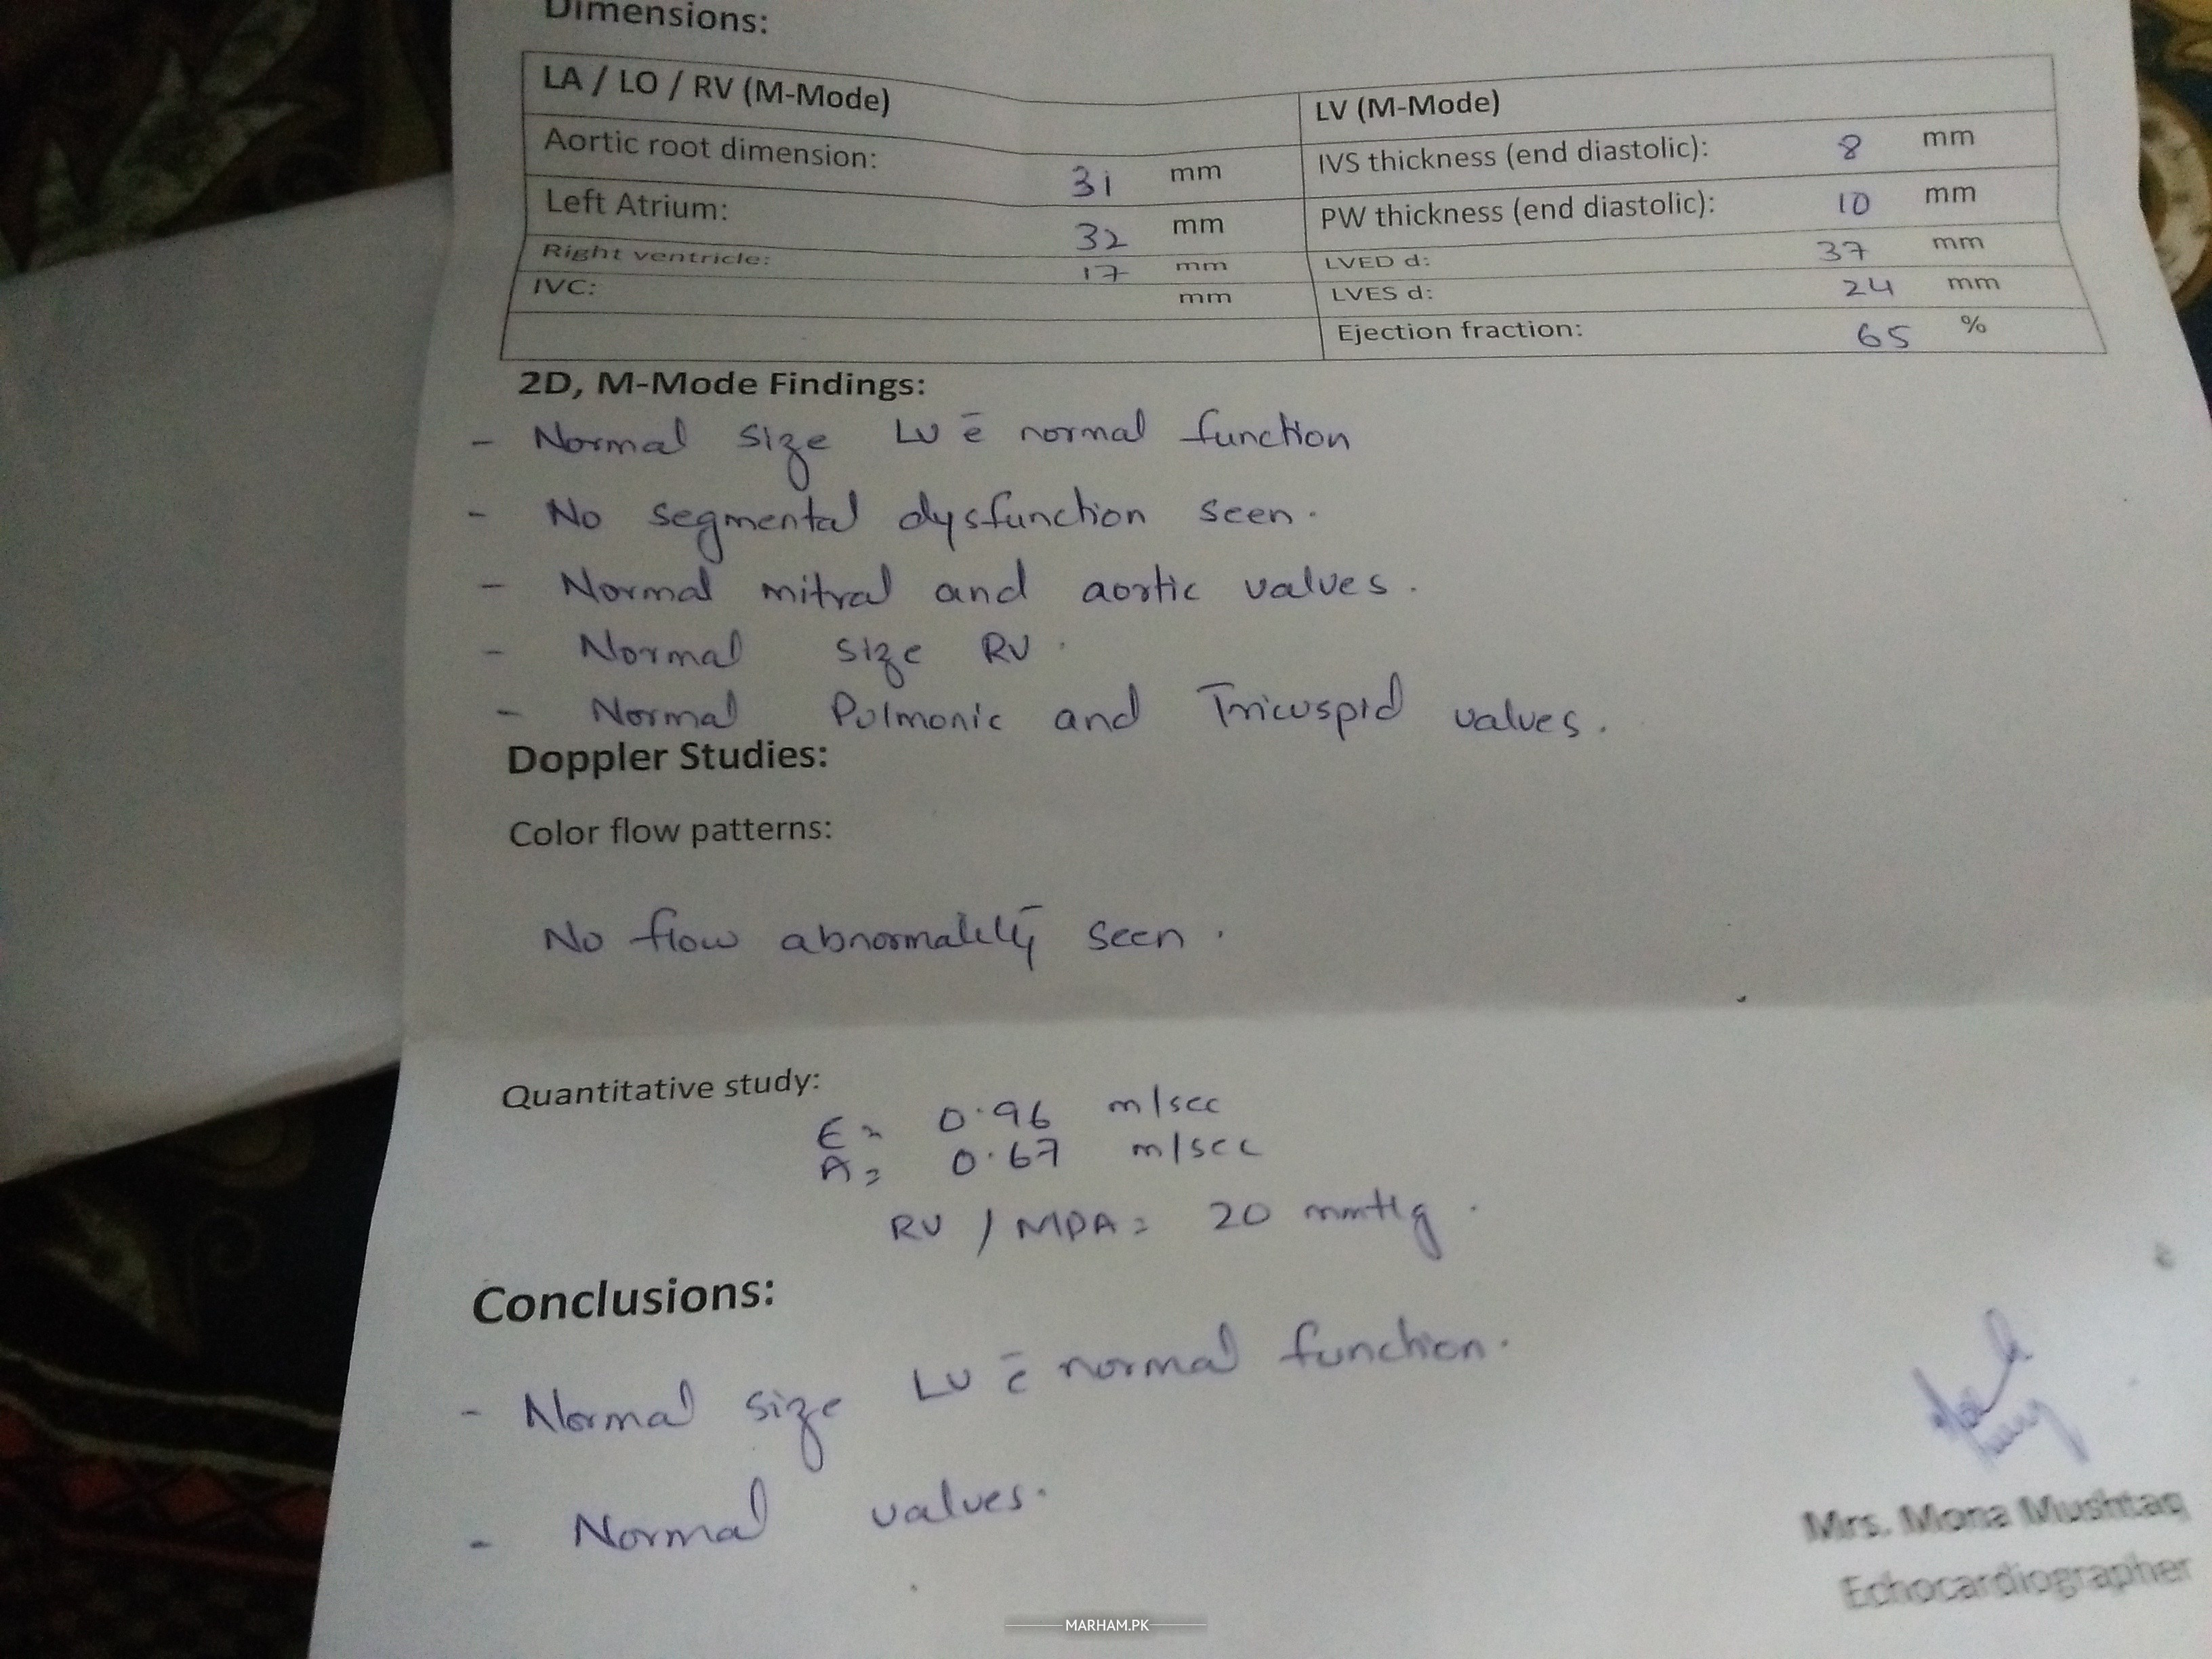 Dimensions:
LA / LO / RV (M-Mode)
LV (M-Mode)
Aortic root dimension: 31 mm
IVS thickness (end diastolic): 8 mm
Left Atrium: 32 mm
PW thickness (end diastolic): 10 mm
Right ventricle: 17 mm
LVED d: 37 mm
IVC: mm
LVES d: 24 mm
Ejection fraction: 65 %
2D, M-Mode Findings:
- Normal size LV c̄ normal function
- No segmental dysfunction seen.
- Normal mitral and aortic valves.
- Normal size RV.
- Normal Pulmonic and Tricuspid valves.
Doppler Studies:
Color flow patterns:
No flow abnormality seen.
Quantitative study:
E = 0.96 m/sec
A = 0.67 m/sec
RV / MPA = 20 mmHg.
Conclusions:
- Normal size LV c̄ normal function.
- Normal valves.
Mrs. Mona Mushtaq
Echocardiographer
MARHAM.PK